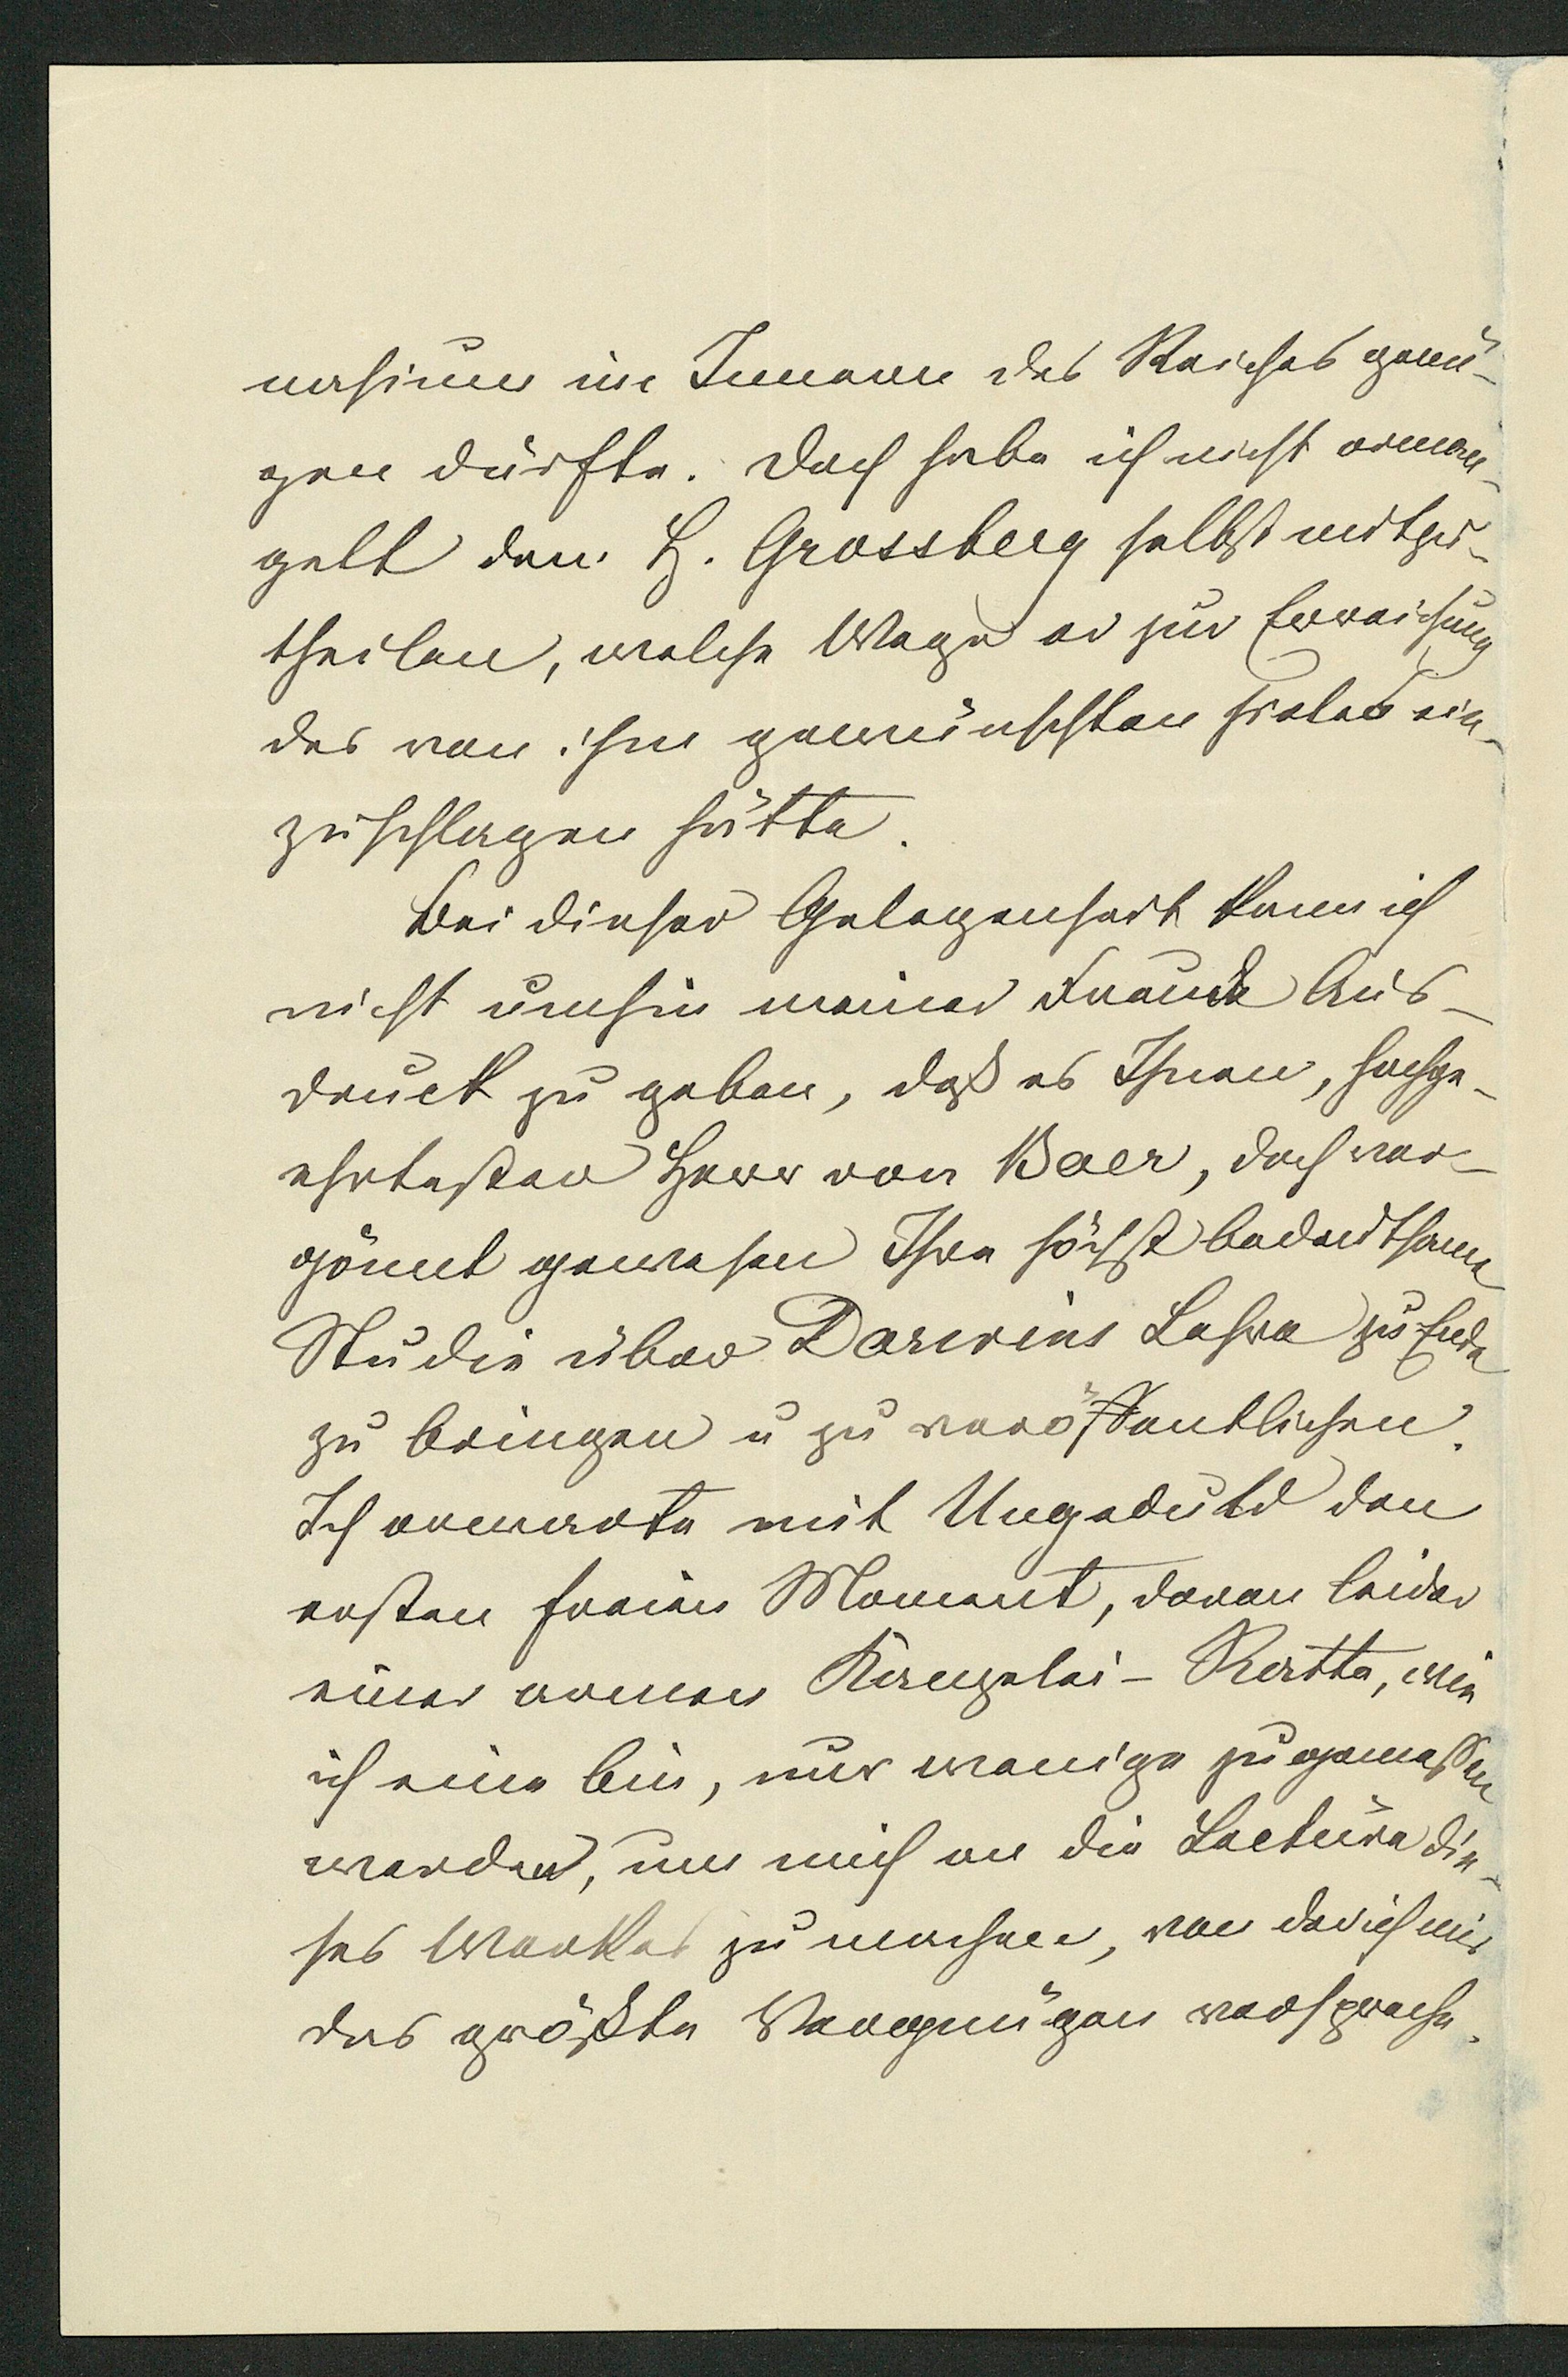 nasium im Innern des Reiches genü-
gen dürfte. Doch habe ich nicht erman-
gelt dem H. Grossberg selbst mitzu-
theilen, welche Wege er zur Erreichung
des von ihm gewünschten Zieles ein-
zuschlagen hätte.
Bei dieser Gelegenheit kann ich
nicht umhin meiner Freude Aus-
druck zu geben, daß es Ihnen, hochge-
ehrtester Herr von Baer, doch ver-
gönnt gewesen Ihre höchst bedeutsame
Studie über Darwins Lehre zu Ende
zu bringen u zu veröffentlichen.
Ich erwarte mit Ungeduld den
ersten freien Moment, deren leider
einer armen Kanzelei-Ratte, wie
ich eine bin, nur wenige zugemessen
werden, um mich an die Lectüre die-
ses Werkes zu machen, von der ich mir
das größte Vergnügen verspreche.